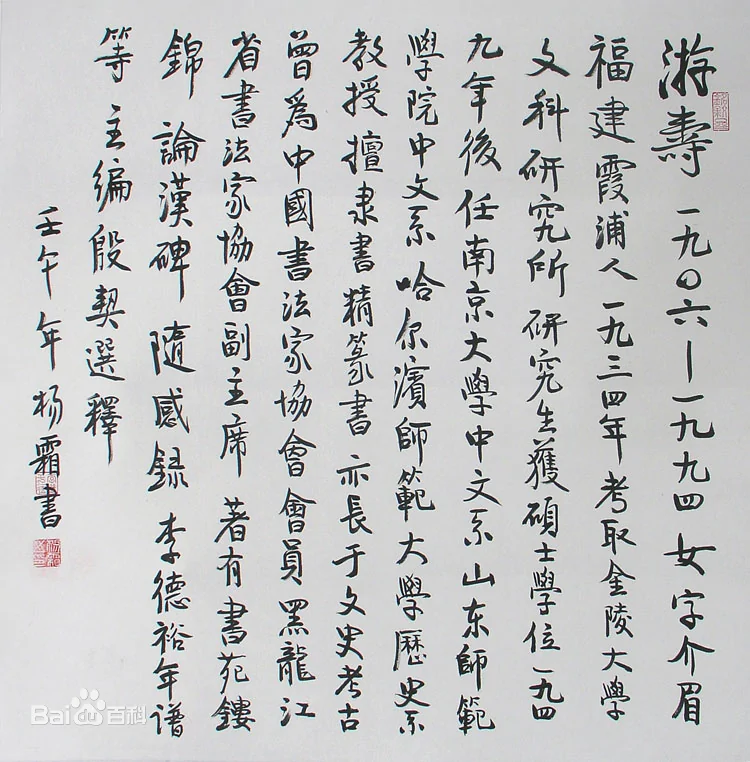 游壽 一九〇六—一九九四 女 字介眉
福建霞浦人 一九三四年考取金陵大學
文科研究所 研究生獲碩士學位 一九四
九年後任南京大學中文系 山东師範
學院中文系 哈尔濱師範大學歷史系
教授 擅隶書精篆書 亦長于文史考古
曾爲中國書法家協會會員 黑龍江
省書法家協會副主席 著有書苑鏤
錦 論漢碑 隨感録 李德裕年谱
等 主编殷契選釋
壬午年 杨霜書
Bai du 百科